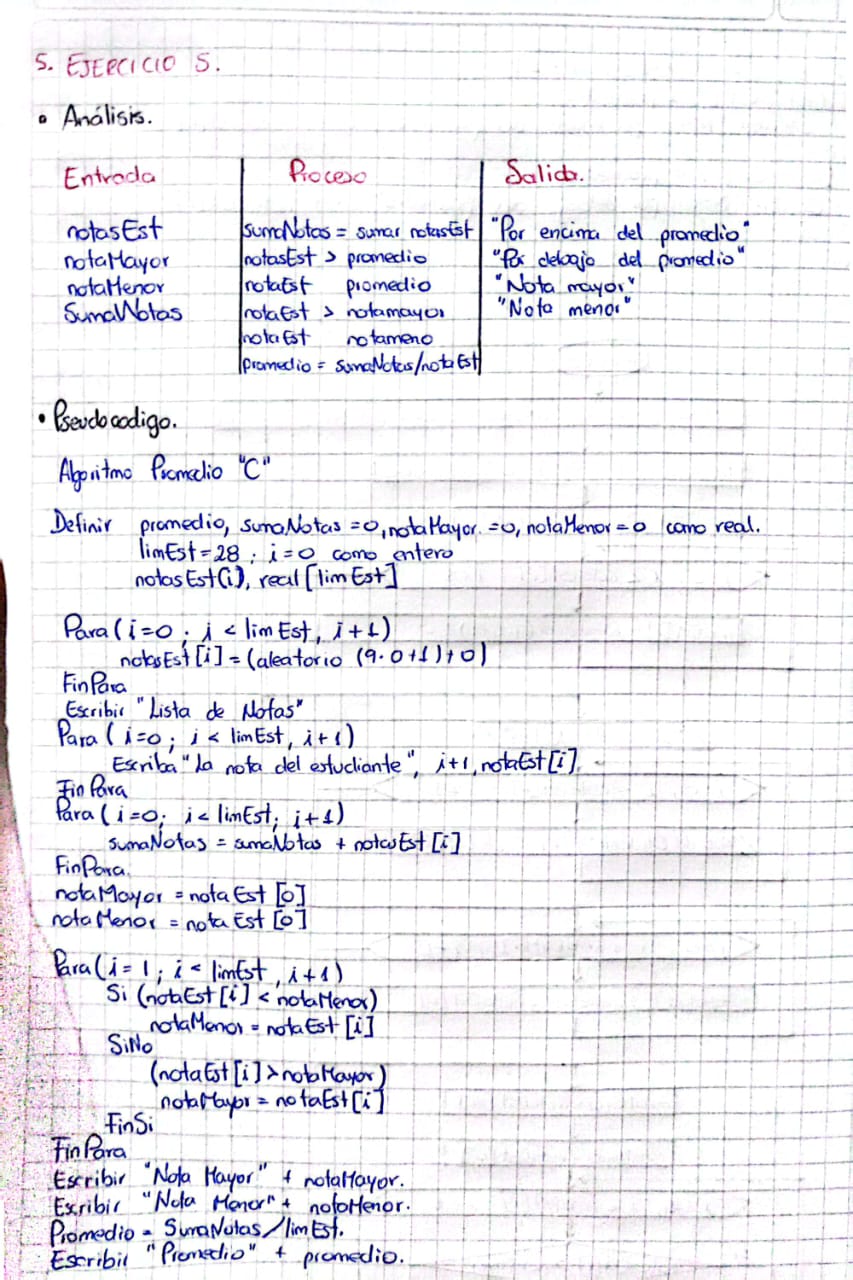 5. EJERCICIO 5.
• Análisis.
Entrada Proceso Salida.
notasEst sumaNotas = sumar notasEst "Por encima del promedio"
notaMayor notasEst > promedio "Por debajo del promedio"
notaMenor notaEst promedio "Nota mayor"
SumaNotas notaEst > notamayor "Nota menor"
nota Est notameno
promedio = sumaNotas/nota Est
• Pseudocodigo.
Algoritmo Promedio "C"
Definir promedio, sumaNotas =0, notaMayor. =0, notaMenor = 0 como real.
limEst = 28 ; i=0 como entero
notasEst(i), real [lim Est]
Para (i=0 ; i < lim Est, i+1)
notasEst [i] = (aleatorio (9.0+1)+0)
FinPara
Escribir "Lista de Notas"
Para ( i=0 ; i < limEst, i+1)
Escriba "La nota del estudiante", i+1, notaEst [i].
Fin Para
Para ( i=0; i< limEst; i+1)
sumaNotas = sumaNotas + notasEst [i]
FinPara.
notaMayor = nota Est [0]
nota Menor = nota Est [0]
Para (i= 1 ; i < limEst , i+1)
Si (notaEst [i] < notaMenor)
notaMenor = notaEst [i]
SiNo
(notaEst [i] > notaMayor)
notaMayor = notaEst [i]
FinSi
Fin Para
Escribir "Nota Mayor" + notaMayor.
Escribir "Nota Menor" + notaMenor.
Promedio = SumaNotas/limEst.
Escribir "Promedio" + promedio.